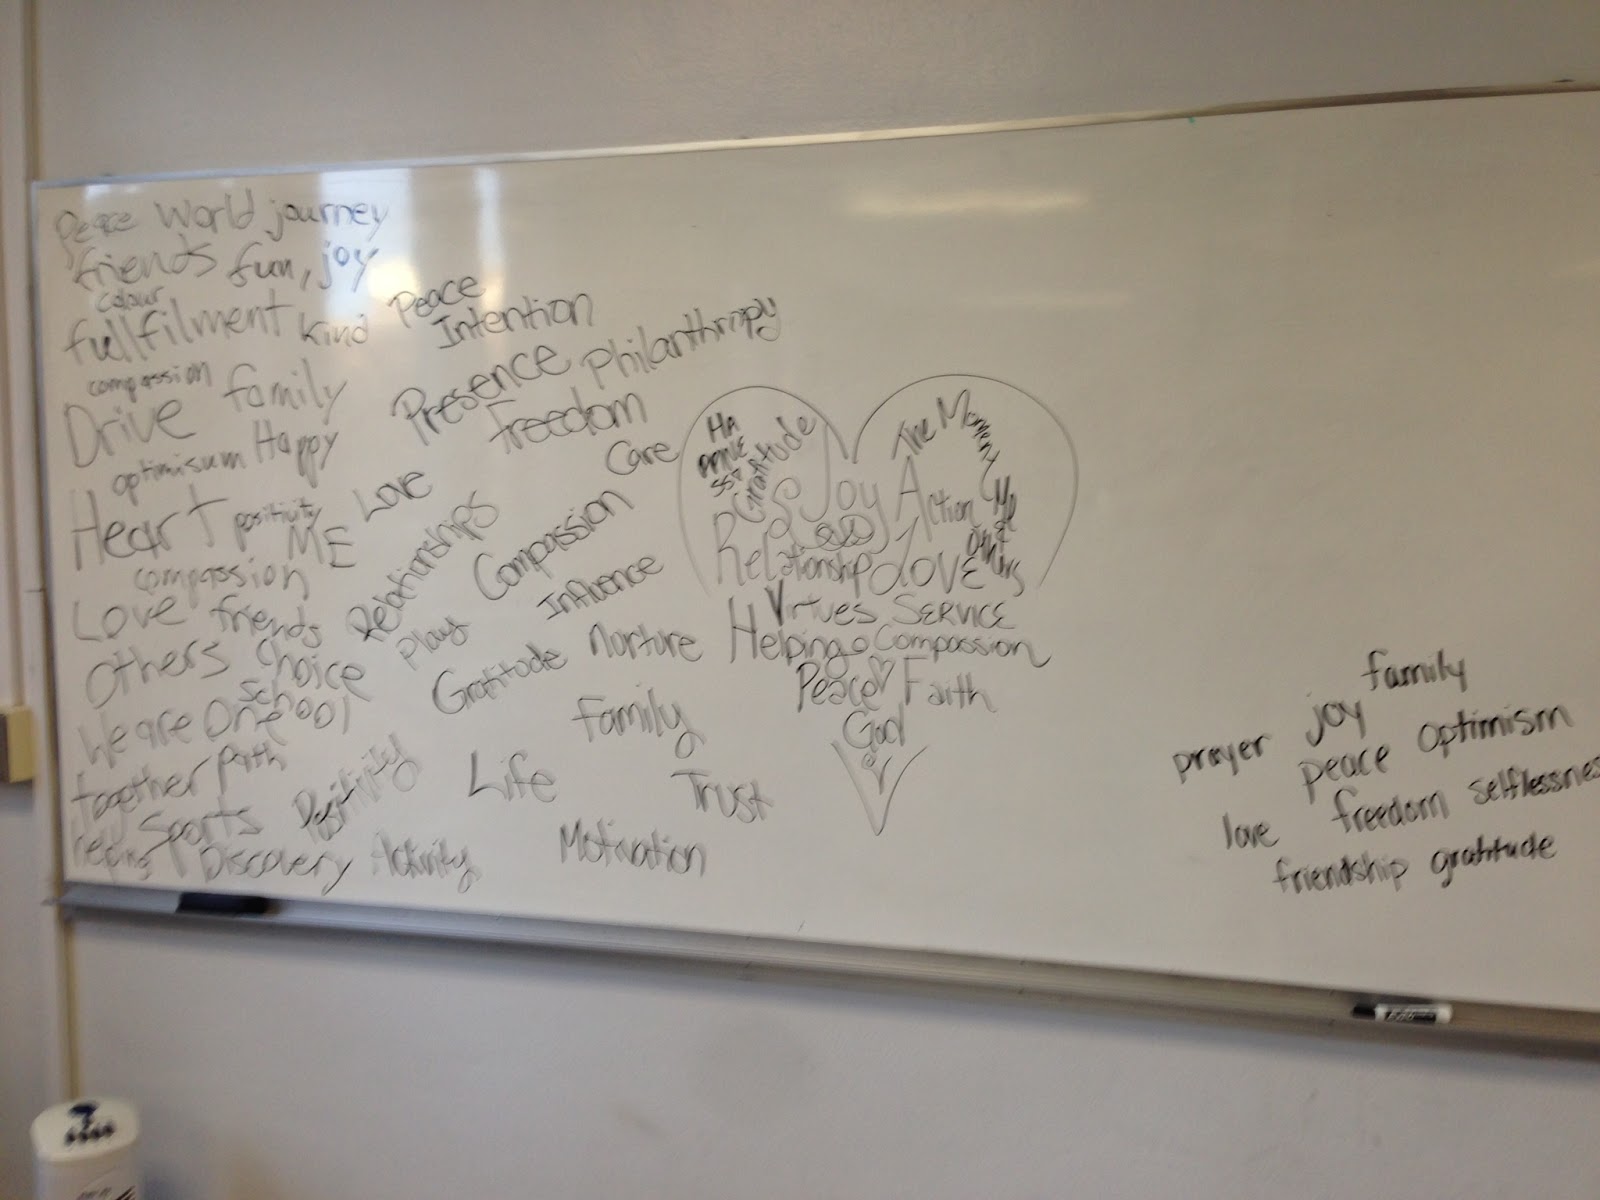 Peace World journey
friends fun, joy
colour
fullfilment kind
compassion family
Drive
optimisum Happy
Heart positivity
ME
compassion
Love friends
Others choice
school
We are One
together path
helping Sports
Discovery
Peace
Intention
Presence Philanthropy
Freedom
Care
Love
Relationships Compassion
Play Influence
Gratitude Nurture
Family
Positivity Life Trust
Activity Motivation
HA
PPINE
SS
Gratitude
The Moment
Joy Action
Relationship LOVE
Me
Others
Virtues SERVICE
Helping Compassion
Peace Faith
God
family
prayer joy
peace optimism
love freedom selflessness
friendship gratitude